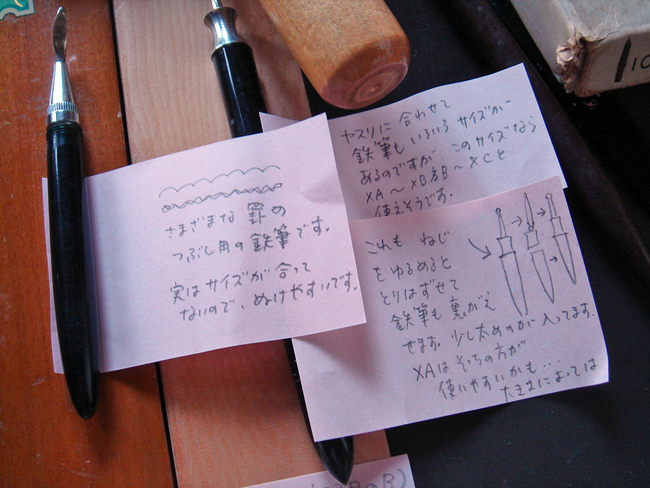 さまざまな 罫の
つぶし用の鉄筆です。
実はサイズが合って
ないので、ぬけやすいです。
ヤスリに 合わせて
鉄筆も いろいろ サイズが
あるのですが、このサイズなら
XA〜XB
使えそうです。
これも ねじ
をゆるめると
とりはずせて
鉄筆も 裏がえ
せます。少し太めのが 入ってます。
XAは そっちの方が
使いやすいかも…
大きさによっては